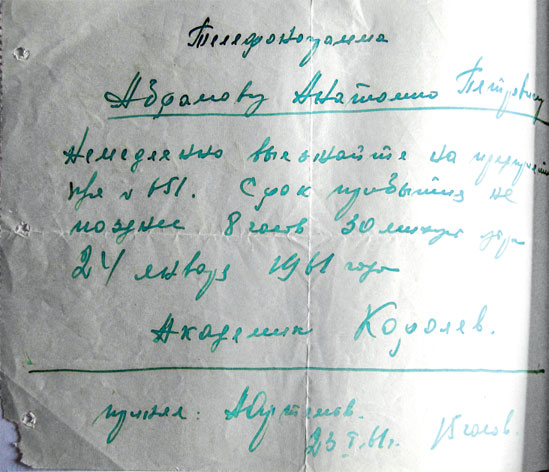 Телефонограмма
Абрамову Анатолию Петровичу
Немедленно выезжайте на предприя
тие п 651. Срок прибытия не
позднее 8 часов 30 минут утра
24 января 1961 года
Академик Королев.
принял: Артемов.
23 I.61г. 15 часов.